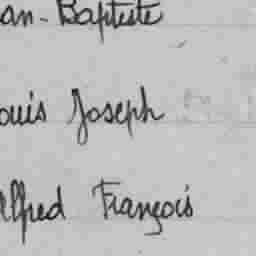 an-Baptiste
ouis Joseph
Alfred François